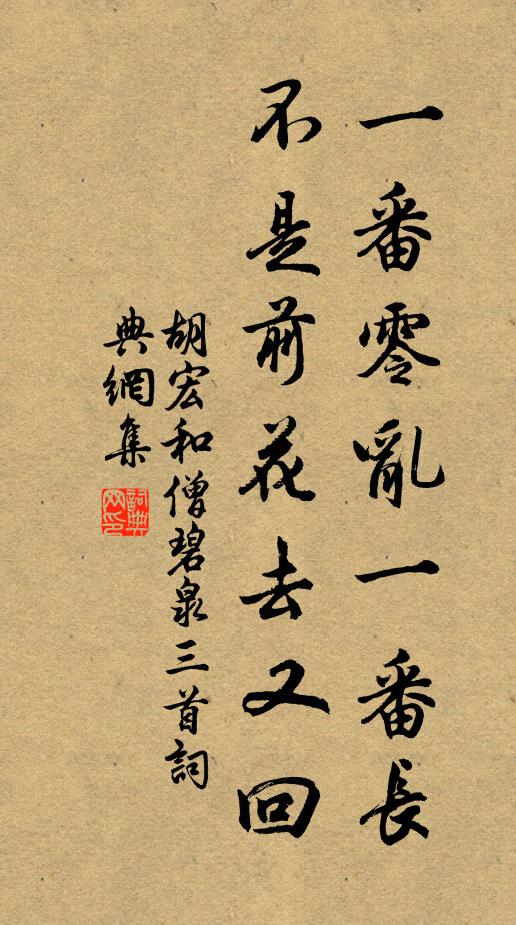 一番零亂一番長
不是前花去又回
胡宏和僧碧泉三首詞
典網集
詞典網印